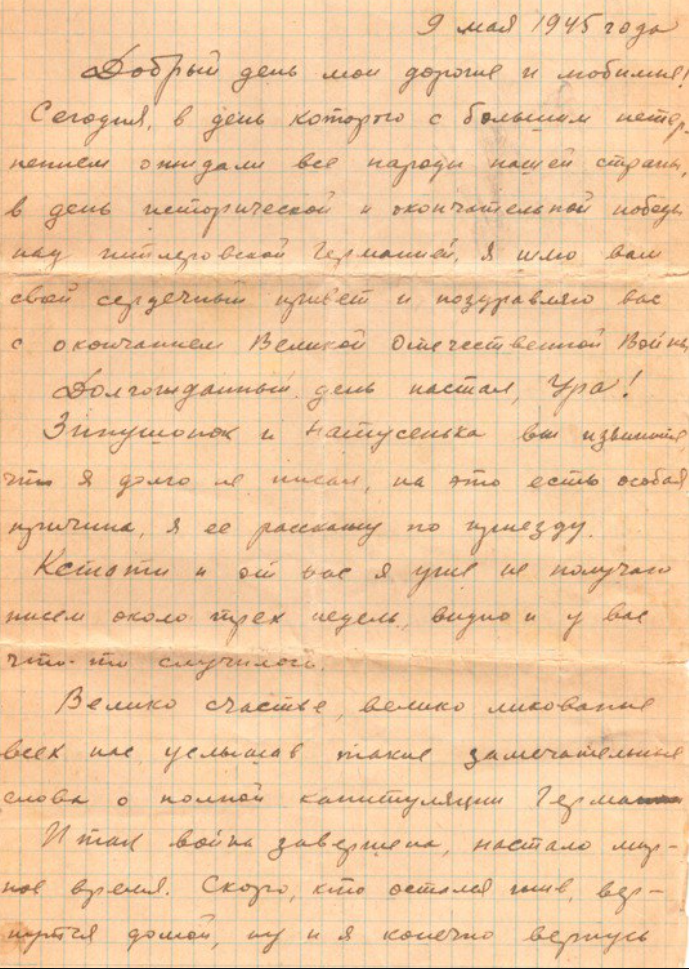 9 мая 1945 года
Добрый день мои дорогие и любимые!
Сегодня, в день которого с большим нетер-
пением ожидали все народы нашей страны,
в день исторической и окончательной победы
над гитлеровской Германией, я шлю вам
свой сердечный привет и поздравляю вас
с окончанием Великой Отечественной Войны
Долгожданный день настал, Ура!
Зинушонок и Натусенька вы извините,
что я долго не писал, на это есть особая
причина, я ее расскажу по приезду.
Кстати и от вас я уже не получаю
писем около трех недель, видно и у вас
что-то случилось.
Велико счастье, велико ликование
всех нас услышав такие замечательные
слова о полной капитуляции Германии
Итак война завершена, настало мир-
ное время. Скоро, кто остался жив, вер-
нутся домой, ну и я конечно вернусь